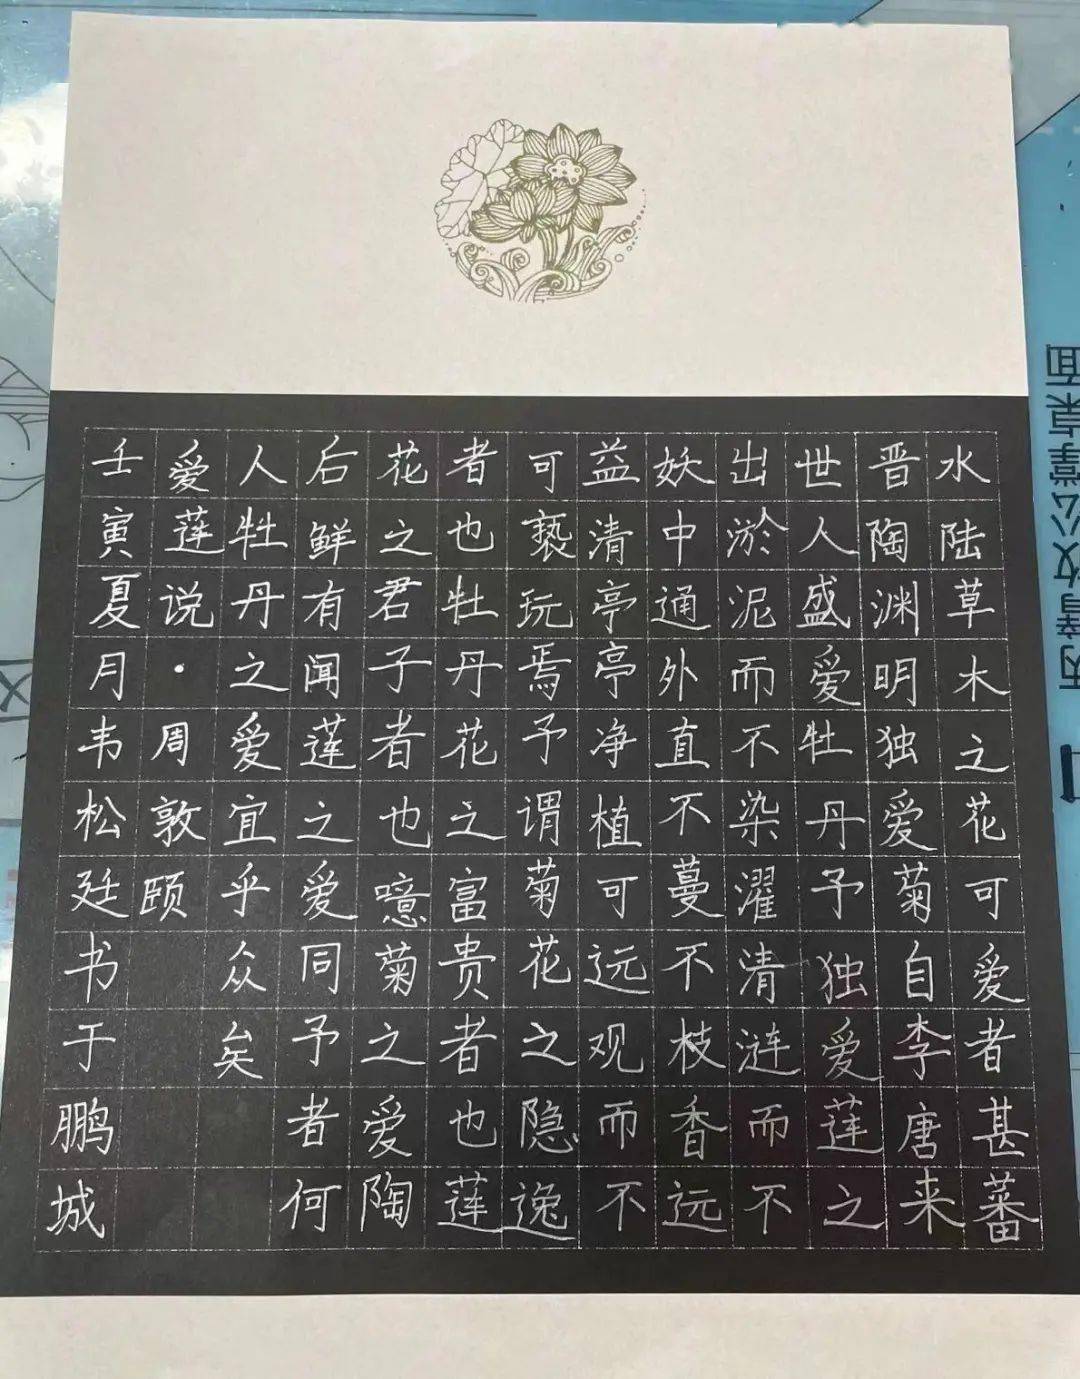 水陆草木之花可爱者甚蕃
晋陶渊明独爱菊自李唐来
世人盛爱牡丹予独爱莲之
出淤泥而不染濯清涟而不
妖中通外直不蔓不枝香远
益清亭亭净植可远观而不
可亵玩焉予谓菊花之隐逸
者也牡丹花之富贵者也莲
花之君子者也噫菊之爱陶
后鲜有闻莲之爱同予者何
人牡丹之爱宜乎众矣
爱莲说·周敦颐
壬寅夏月韦松廷书于鹏城